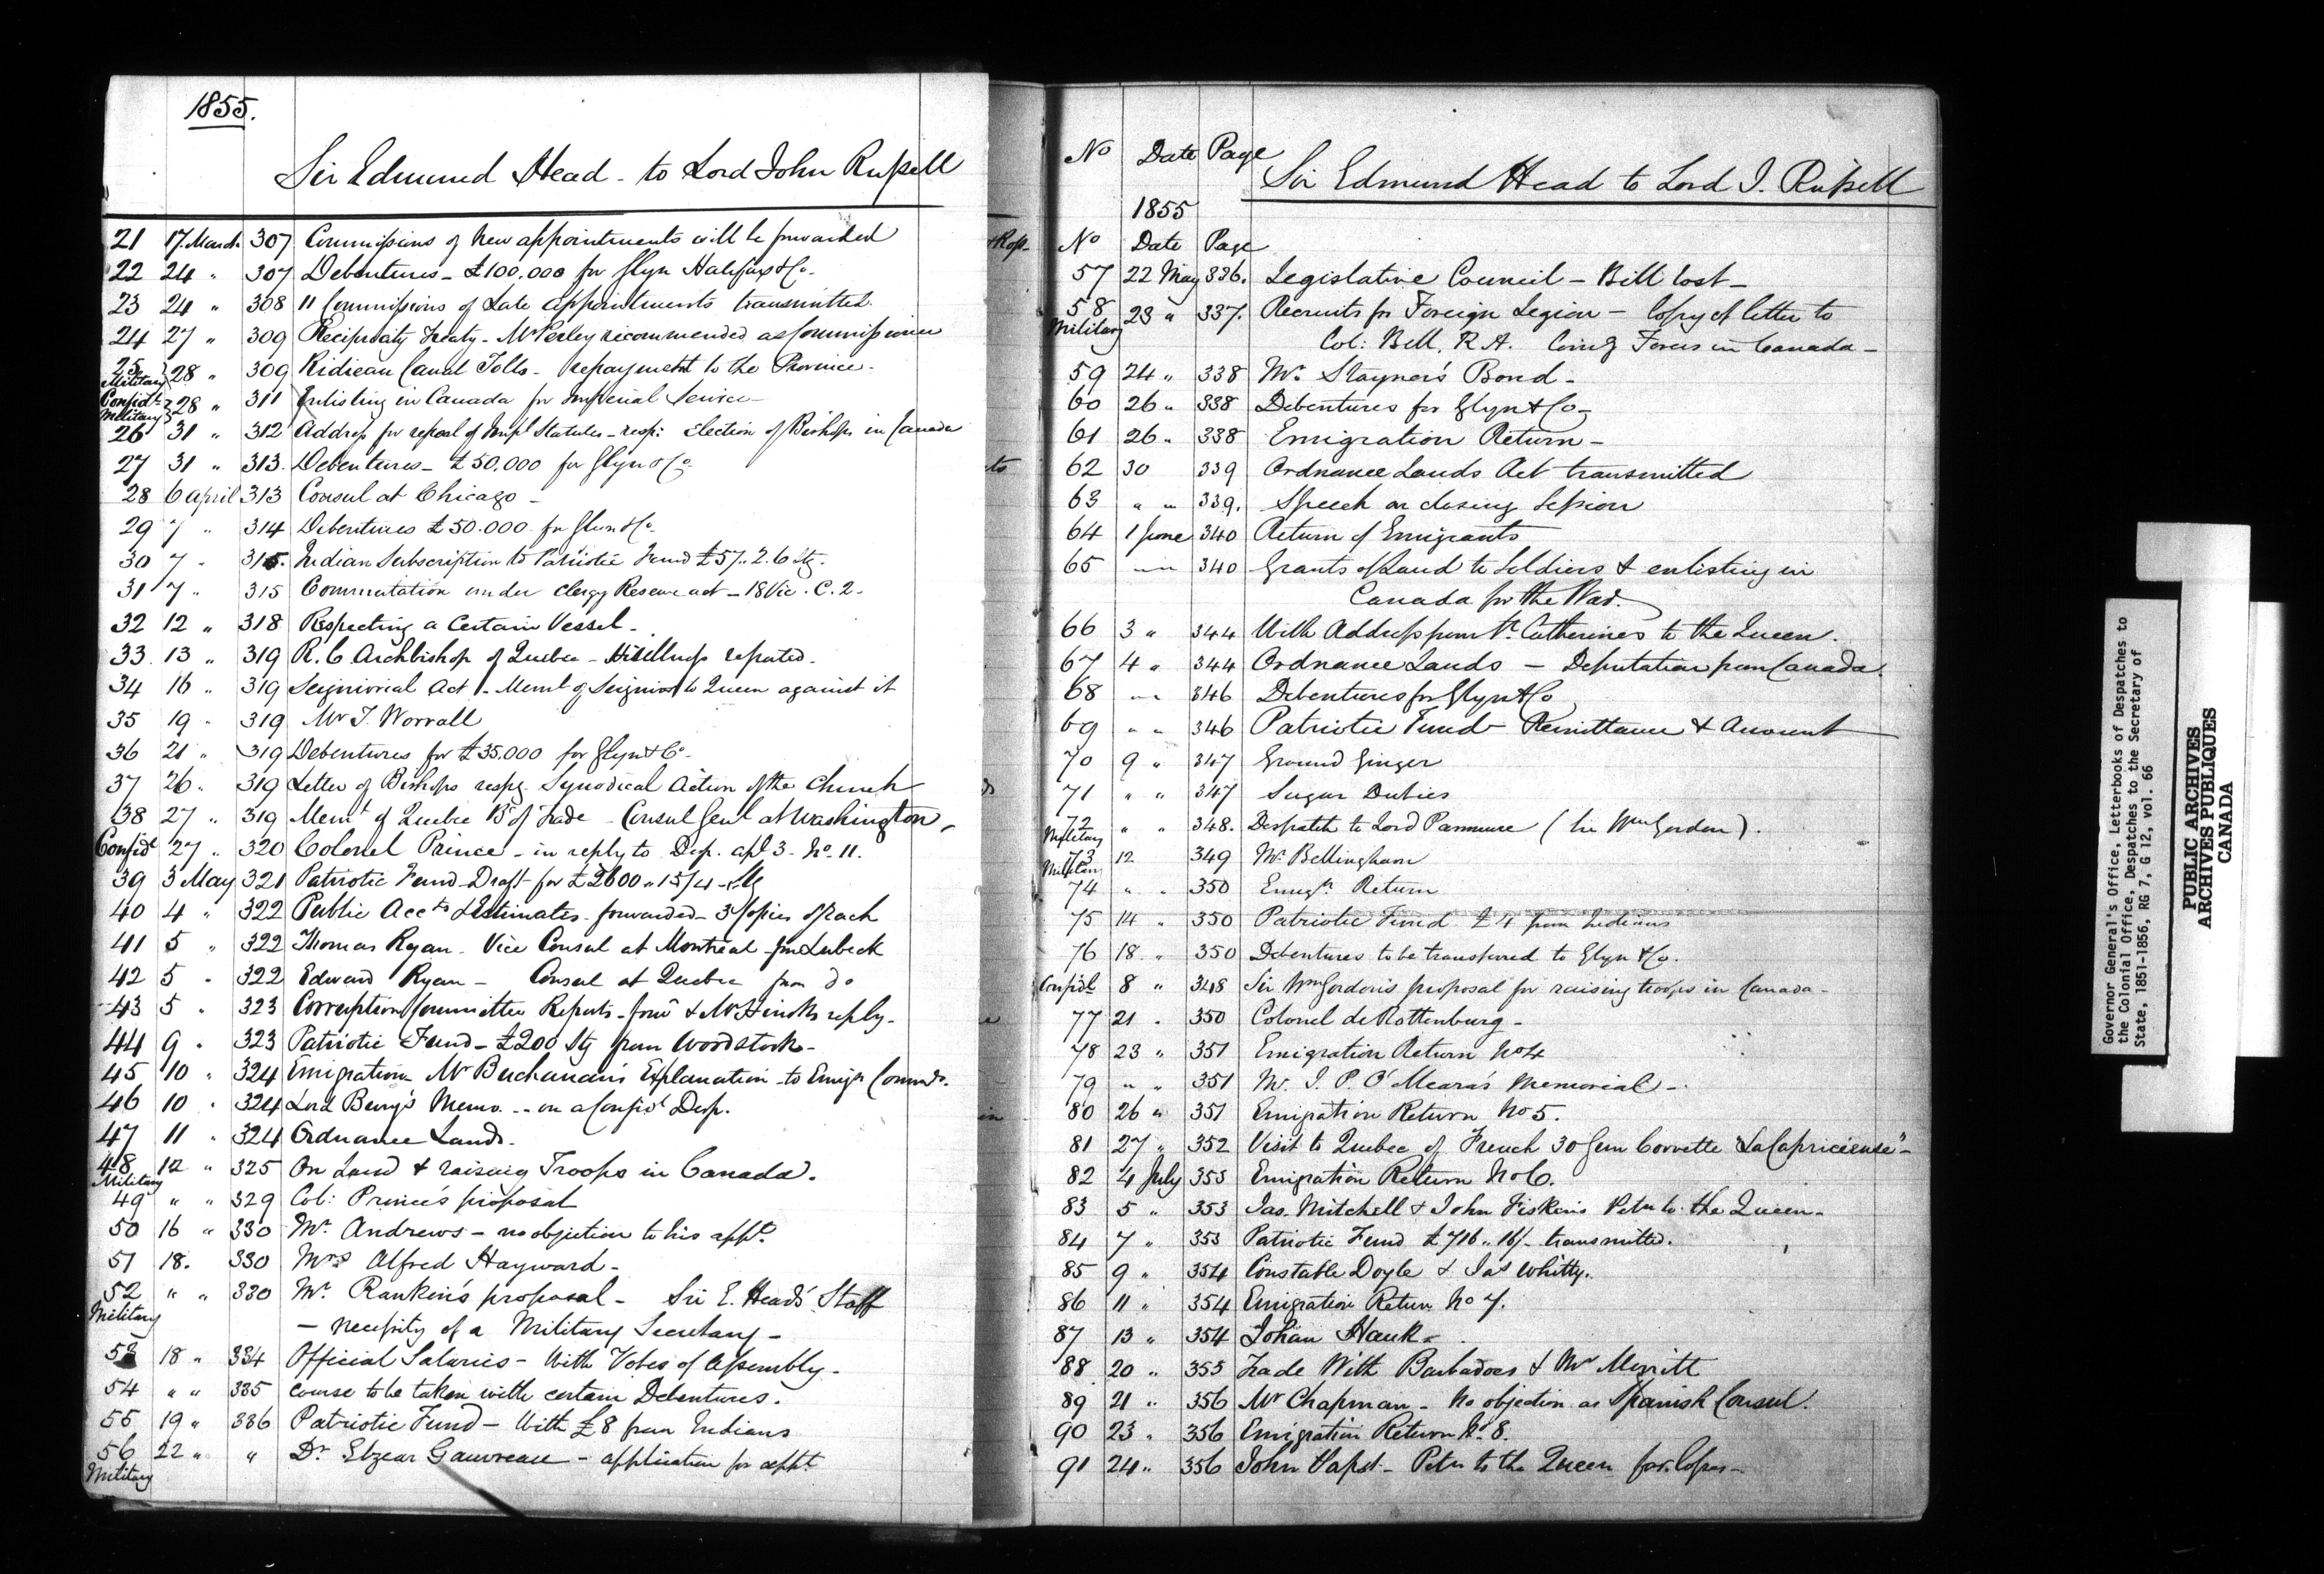 1855.
Sir Edmund Head - to Lord John Russell
21 17 March 307 Commissions of new appointments will be forwarded
22 24 " 307 Debentures - £100,000 for Glyn Halifax & Co.
23 24 " 308 11 Commissions of Late appointments transmitted.
24 27 " 309 Reciprocity Treaty - Mr Perley recommended as Commissioner
25 Military 28 " 309 Ridieau Canal Tolls - repayment to the Province.
Confidl Military 28 " 311 Enlisting in Canada for Imperial Service -
26 31 " 312 Address for repeal of Impl Statutes - resp: Election of Bishops in Canada
27 31 " 313. Debentures - £50,000 for Glyn & Co.
28 6 April 313 Consul at Chicago -
29 7 " 314 Debentures £50.000 for Glyn & Co.
30 7 " 315. Indian Subscription to Patriotic Fund £57..2.6 Stg.
31 7 " 315 Commutation under Clergy Reserve act - 18 Vic. C. 2.
32 12 " 318 Respecting a Certain Vessel -
33. 13 " 319 R. C. Archbishop of Quebec - reported.
34 16 " 319 Seigniorial Act - Meml of Seigniors to Queen against it
35 19 " 319 Mr T. Worrall
36 21 " 319 Debentures for £35,000 for Glyn & Co.
37 26 " 319 Letter of Bishops respg Synodical Action of the Church
38 27 " 319 Meml of Quebec Bd of Trade - Consul Genl at Washington,
Confidl 27 " 320 Colonel Prince - in reply to Desp. apl 3 - No. 11.
39 3 May 321 Patriotic Fund - Draft for £2600 " 15/4 - Stg
40 4 " 322 Public Accts & Estimates - forwarded - 3 Copies of each
41 5 " 322 Thomas Ryan - Vice Consul at Montreal - from Lubeck
42 5 " 322 Edward Ryan - Consul at Quebec from do
43 5 " 323 Corruption Committee Reports - & Mr Hincks reply -
44 9 " 323 Patriotic Fund - £200 Stg from Woodstock -
45 10 " 324 Emigration Mr Buchanan's Explanation - to Emign Commrs.
46 10 " 324 Lord Bury's Memo. - on a Confidl Desp.
47 11 " 324 Ordnance Lands.
48 Military 12 " 325 On Land & raising Troops in Canada.
49 " " 329 Col: Prince's proposal
50 16 " 330 Mr. Andrews - no objection to his appt.
51 18. 330 Mrs Alfred Hayward -
52 Military " " 330 Mr. Rankin's proposal - Sir E. Head's Staff
- necessity of a Military Secretary -
53 18 " 334 Official Salaries - With Votes of Assembly -
54 " " 335 course to be taken with certain Debentures.
55 19 " 336 Patriotic Fund - With £8 from Indians
56 Military 22 " " Dr. Elzear Gauvreau - application for appt.
No Date Page Sir Edmund Head to Lord J. Russell
1855
No Date Page
57 22 May 336. Legislative Council - Bill lost -
58 Military 23 " 337. Recruits for Foreign Legion - Copy of letter to
Col: Bell, R.A. Comg Forces in Canada -
59 24 " 338 Mr. Stayner's Bond -
60 26 " 338 Debentures for Glyn & Co -
61 26 " 338 Emigration Return -
62 30 339 Ordnance Lands Act transmitted
63 " " 339. Speech on closing Session
64 1 June 340 Return of Emigrants
65 " " 340 Grants of Land to Soldiers & enlisting in
Canada for the War.
66 3 " 344 With Address from St. Catherines to the Queen.
67 4 " 344 Ordnance Lands - Deputation from Canada.
68 " " 346 Debentures for Glyn & Co
69 " " 346 Patriotic Fund - Remittance & Account
70 9 " 347 Ground Ginger
71 " " 347 Sugar Duties
72 Military " " 348. Despatch to Lord Panmure (Sir Wm Gordon).
73 Military 12 349 Mr Bellingham
74 " " 350 Emign Return
75 14 " 350 Patriotic Fund £4 from Indians
76 18. " 350 Debentures to be transferred to Glyn & Co.
Confidl 8 " 348 Sir Wm Gordon's proposal for raising troops in Canada -
77 21 " 350 Colonel de Rottenburg -
78 23 " 351 Emigration Return No 4
79 " " 351 Mr. J. P. O'Meara's Memorial -
80 26 " 351 Emigration Return No 5.
81 27 " 352 Visit to Quebec of French 30 Gun Corvette "La Capricieuse" -
82 4 July 353 Emigration Return No 6.
83 5 " 353 Jas. Mitchell & John Fisken's Petn to the Queen -
84 7 " 353 Patriotic Fund £716 .. 16/- transmitted.
85 9 " 354 Constable Doyle & Jas Whitty.
86 11 " 354 Emigration Return No 7.
87 13 " 354 Johan Hauk -
88 20 " 355 Trade With Barbadoes & Mr Merritt
89 21 " 356 Mr Chapman - No objection as Spanish Consul.
90 23 " 356 Emigration Return No. 8.
91 24 " 356 John - Petn to the Queen for
Governor General's Office, Letterbooks of Despatches to
the Colonial Office, Despatches to the Secretary of
State, 1851-1856, RG 7, G 12, vol. 66
PUBLIC ARCHIVES
ARCHIVES PUBLIQUES
CANADA